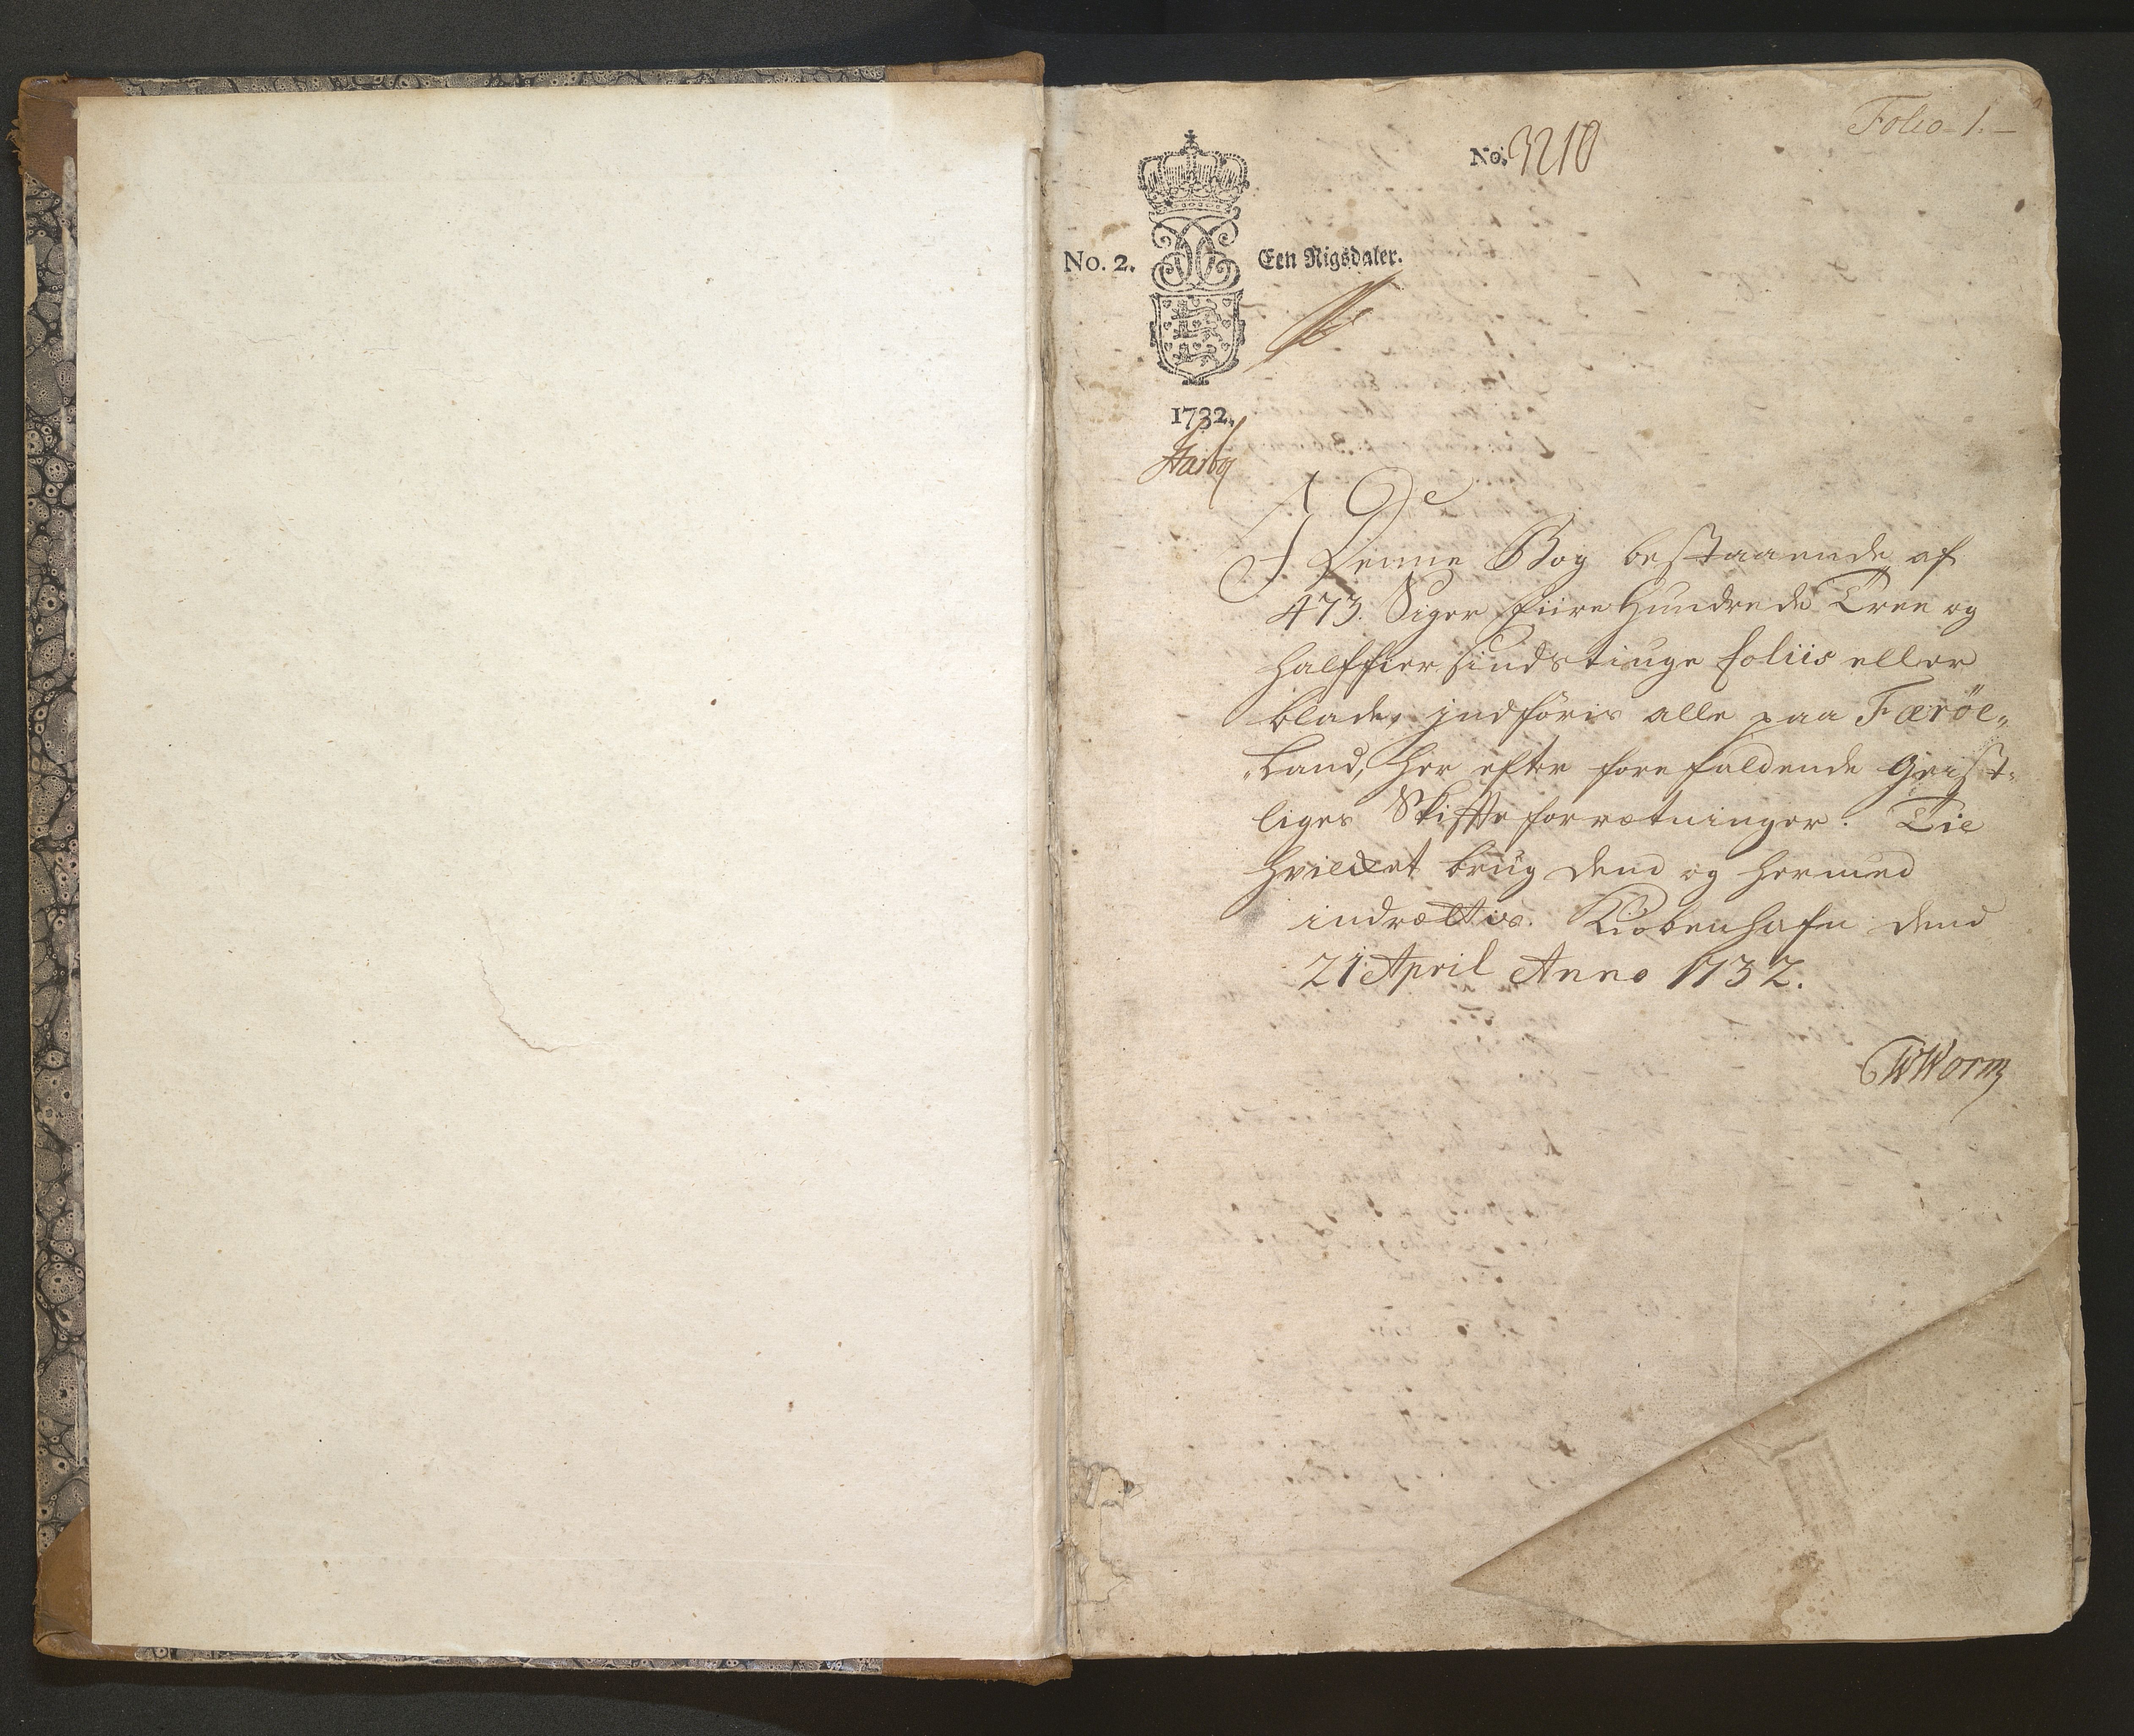 Folio 1.
No. 3210
No. 2. Een Rigsdaler.
1732.
I Denne Bog bestaaende af
473. Siger fiire Hundrede Tree og
halffiersindstiuge foliis eller
blade, indføris alle paa Færöe„
„Land, her efter forefaldende Geist„
liges Skifteforretninger. Tie
hvilcket brug dend og hermed
indrættis. Kiøbenhafn dend
21 April Anno 1732.
CWWorm